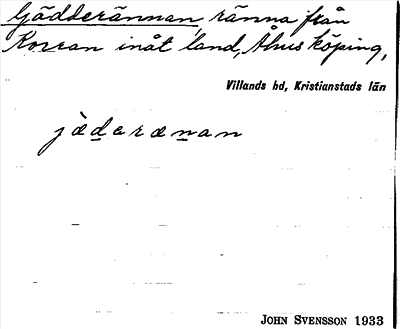 Gädderännan, ränna från
Korran inåt land, Åhus köping,
Villands hd, Kristianstads län
jàḏeræṉan
JOHN SVENSSON 1933